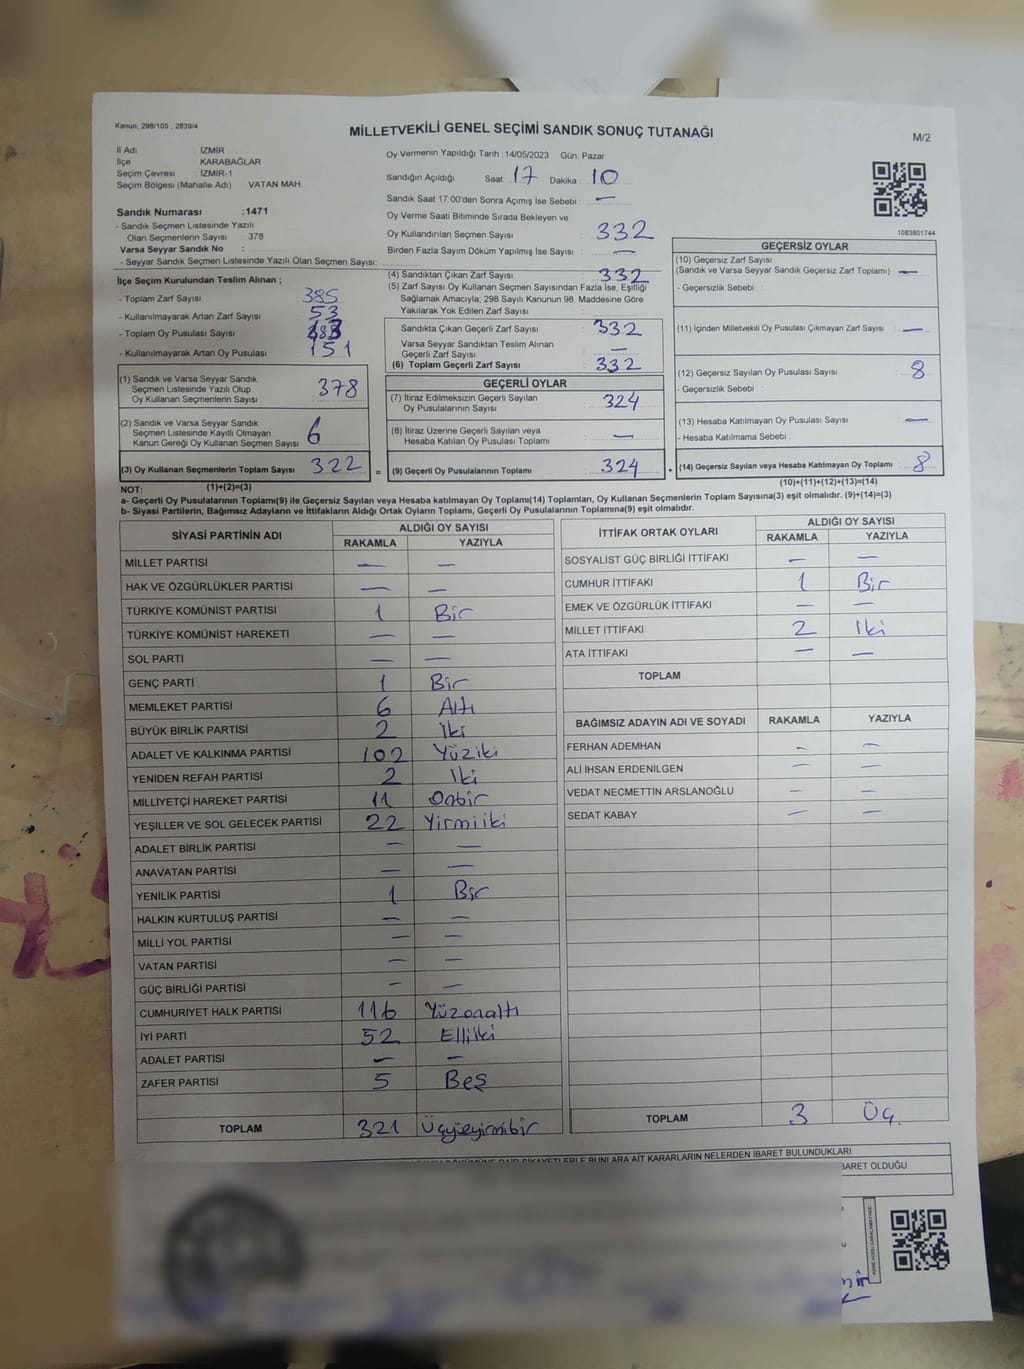 Kanun; 298/105 , 2839/4
MİLLETVEKİLİ GENEL SEÇİMİ SANDIK SONUÇ TUTANAĞI
M/2
İl Adı : İZMİR
İlçe : KARABAĞLAR
Seçim Çevresi : İZMİR-1
Seçim Bölgesi (Mahalle Adı) VATAN MAH.
Sandık Numarası :1471
- Sandık Seçmen Listesinde Yazılı
Olan Seçmenlerin Sayısı 378
Varsa Seyyar Sandık No :
- Seyyar Sandık Seçmen Listesinde Yazılı Olan Seçmen Sayısı:
Oy Vermenin Yapıldığı Tarih :14/05/2023 Gün: Pazar
Sandığın Açıldığı Saat: 17 Dakika : 10
Sandık Saat 17.00'den Sonra Açımış İse Sebebi : —
Oy Verme Saati Bitiminde Sırada Bekleyen ve
Oy Kullandırılan Seçmen Sayısı : 332
Birden Fazla Sayım Döküm Yapılmış İse Sayısı : —
1083801744
İlçe Seçim Kurulundan Teslim Alınan ;
- Toplam Zarf Sayısı : 385
- Kullanılmayarak Artan Zarf Sayısı : 53
- Toplam Oy Pusulası Sayısı
- Kullanılmayarak Artan Oy Pusulası : 151
(1) Sandık ve Varsa Seyyar Sandık
Seçmen Listesinde Yazılı Olup
Oy Kullanan Seçmenlerin Sayısı 378
(2) Sandık ve Varsa Seyyar Sandık
Seçmen Listesinde Kayıtlı Olmayan
Kanun Gereği Oy Kullanan Seçmen Sayısı 6
(3) Oy Kullanan Seçmenlerin Toplam Sayısı 322 =
(1)+(2)=(3)
(4) Sandıktan Çıkan Zarf Sayısı : 332
(5) Zarf Sayısı Oy Kullanan Seçmen Sayısından Fazla İse, Eşitliği
Sağlamak Amacıyla, 298 Sayılı Kanunun 98. Maddesine Göre
Yakılarak Yok Edilen Zarf Sayısı :
Sandıkta Çıkan Geçerli Zarf Sayısı : 332
Varsa Seyyar Sandıktan Teslim Alınan
Geçerli Zarf Sayısı : —
(6) Toplam Geçerli Zarf Sayısı : 332
GEÇERLİ OYLAR
(7) İtiraz Edilmeksizin Geçerli Sayılan
Oy Pusulalarının Sayısı : 324
(8) İtiraz Üzerine Geçerli Sayılan veya
Hesaba Katılan Oy Pusulası Toplamı : —
(9) Geçerli Oy Pusulalarının Toplamı : 324 +
GEÇERSİZ OYLAR
(10) Geçersiz Zarf Sayısı
(Sandık ve Varsa Seyyar Sandık Geçersiz Zarf Toplamı) : —
- Geçersizlik Sebebi :
(11) İçinden Milletvekili Oy Pusulası Çıkmayan Zarf Sayısı : —
(12) Geçersiz Sayılan Oy Pusulası Sayısı : 8
- Geçersizlik Sebebi :
(13) Hesaba Katılmayan Oy Pusulası Sayısı : —
- Hesaba Katılmama Sebebi :
(14) Geçersiz Sayılan veya Hesaba Katılmayan Oy Toplamı : 8
(10)+(11)+(12)+(13)=(14)
NOT:
a- Geçerli Oy Pusulalarının Toplamı(9) ile Geçersiz Sayılan veya Hesaba katılmayan Oy Toplamı(14) Toplamları, Oy Kullanan Seçmenlerin Toplam Sayısına(3) eşit olmalıdır. (9)+(14)=(3)
b- Siyasi Partilerin, Bağımsız Adayların ve İttifakların Aldığı Ortak Oyların Toplamı, Geçerli Oy Pusulalarının Toplamına(9) eşit olmalıdır.
SİYASİ PARTİNİN ADI ALDIĞI OY SAYISI
RAKAMLA YAZIYLA
MİLLET PARTİSİ — —
HAK VE ÖZGÜRLÜKLER PARTİSİ — —
TÜRKİYE KOMÜNİST PARTİSİ 1 Bir
TÜRKİYE KOMÜNİST HAREKETİ — —
SOL PARTİ — —
GENÇ PARTİ 1 Bir
MEMLEKET PARTİSİ 6 Altı
BÜYÜK BİRLİK PARTİSİ 2 İki
ADALET VE KALKINMA PARTİSİ 102 Yüziki
YENİDEN REFAH PARTİSİ 2 İki
MİLLİYETÇİ HAREKET PARTİSİ 11 Onbir
YEŞİLLER VE SOL GELECEK PARTİSİ 22 Yirmiiki
ADALET BİRLİK PARTİSİ — —
ANAVATAN PARTİSİ — —
YENİLİK PARTİSİ 1 Bir
HALKIN KURTULUŞ PARTİSİ — —
MİLLİ YOL PARTİSİ — —
VATAN PARTİSİ — —
GÜÇ BİRLİĞİ PARTİSİ — —
CUMHURİYET HALK PARTİSİ 116 Yüzonaltı
İYİ PARTİ 52 Elliiki
ADALET PARTİSİ — —
ZAFER PARTİSİ 5 Beş
TOPLAM 321 Üçyüzyirmibir
İTTİFAK ORTAK OYLARI ALDIĞI OY SAYISI
RAKAMLA YAZIYLA
SOSYALİST GÜÇ BİRLİĞİ İTTİFAKI — —
CUMHUR İTTİFAKI 1 Bir
EMEK VE ÖZGÜRLÜK İTTİFAKI — —
MİLLET İTTİFAKI 2 İki
ATA İTTİFAKI — —
TOPLAM
BAĞIMSIZ ADAYIN ADI VE SOYADI RAKAMLA YAZIYLA
FERHAN ADEMHAN — —
ALİ İHSAN ERDENİLGEN — —
VEDAT NECMETTİN ARSLANOĞLU — —
SEDAT KABAY — —
TOPLAM 3 Üç.
ŞİKAYETLERLE BUNLARA AİT KARARLARIN NELERDEN İBARET BULUNDUKLARI
BARET OLDUĞU